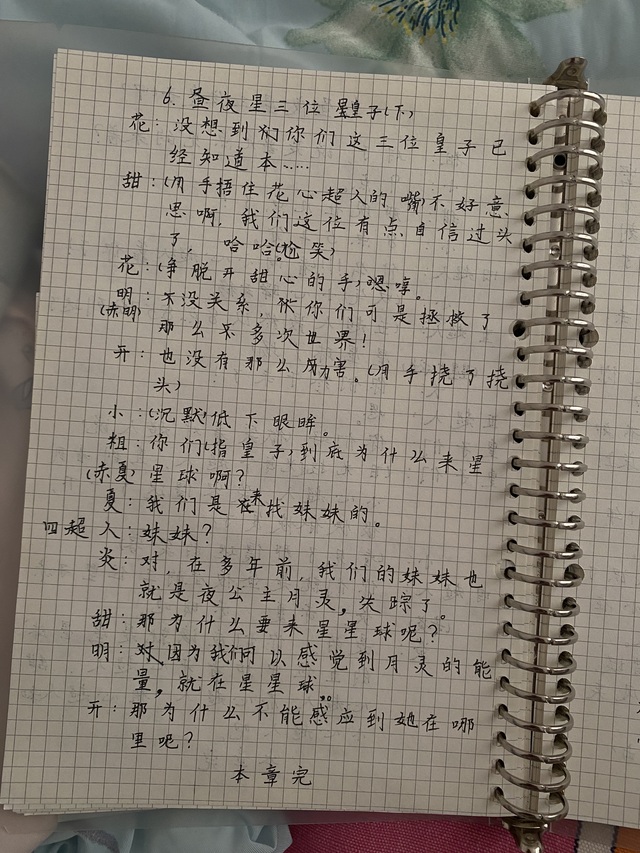 6. 昼夜星三位皇子(下)
花:没想到你们这三位皇子已
经知道本……
甜:(用手捂住花心超人的嘴)不好意
思啊,我们这位有点自信过头
了,哈哈(尬笑)
花:(争脱开甜心的手)嗯哼。
明:不没关系,你们可是拯救了
(赤明)
那么多次世界!
开:也没有那么厉害。(用手挠了挠
头)
小:(沉默)低下眼眸。
粗:你们(指皇子)到底为什么来星
(赤夏)星球啊?
夏:我们是来找妹妹的。
四超人:妹妹?
炎:对,在多年前,我们的妹妹也
就是夜公主月灵,失踪了。
甜:那为什么要来星星球呢?
明:对,因为我们可以感觉到月灵的能
量,就在星星球。
开:那为什么不能感应到她在哪
里呢?
本章完